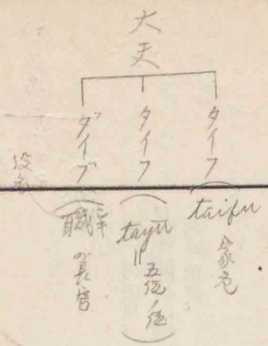 大夫
タイフ（taifu 家老
タイフ（tayū＝五位ノ位）
ダイブ（職 の長官
役名